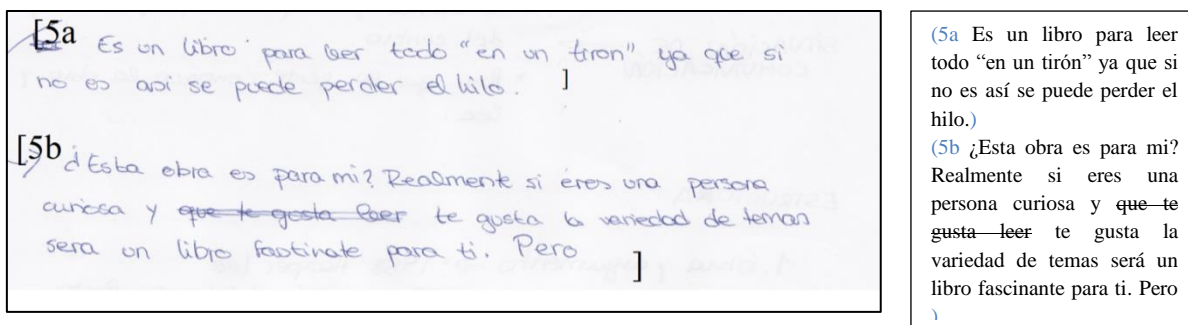 [5a Es un libro para leer todo "en un tiron" ya que si
no es así se puede perder el hilo. ]
[5b ¿Esta obra es para mi? Realmente si eres una persona
curiosa y que te gusta leer te gusta la variedad de temas
sera un libro fastinate para ti. Pero ]
(5a Es un libro para leer
todo “en un tirón” ya que si
no es así se puede perder el
hilo.)
(5b ¿Esta obra es para mi?
Realmente si eres una
persona curiosa y que te
gusta leer te gusta la
variedad de temas será un
libro fascinante para ti. Pero
)